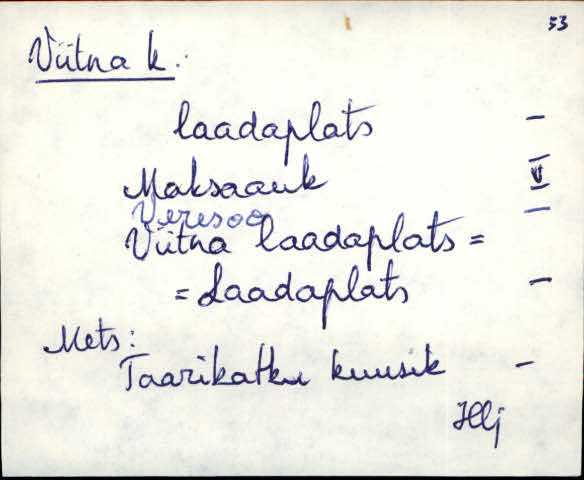 53
Viitna k.
laadaplats –
Maksaauk V
Veresoo –
Viitna laadaplats =
= Laadaplats –
Mets:
Taarikatku kuusik –